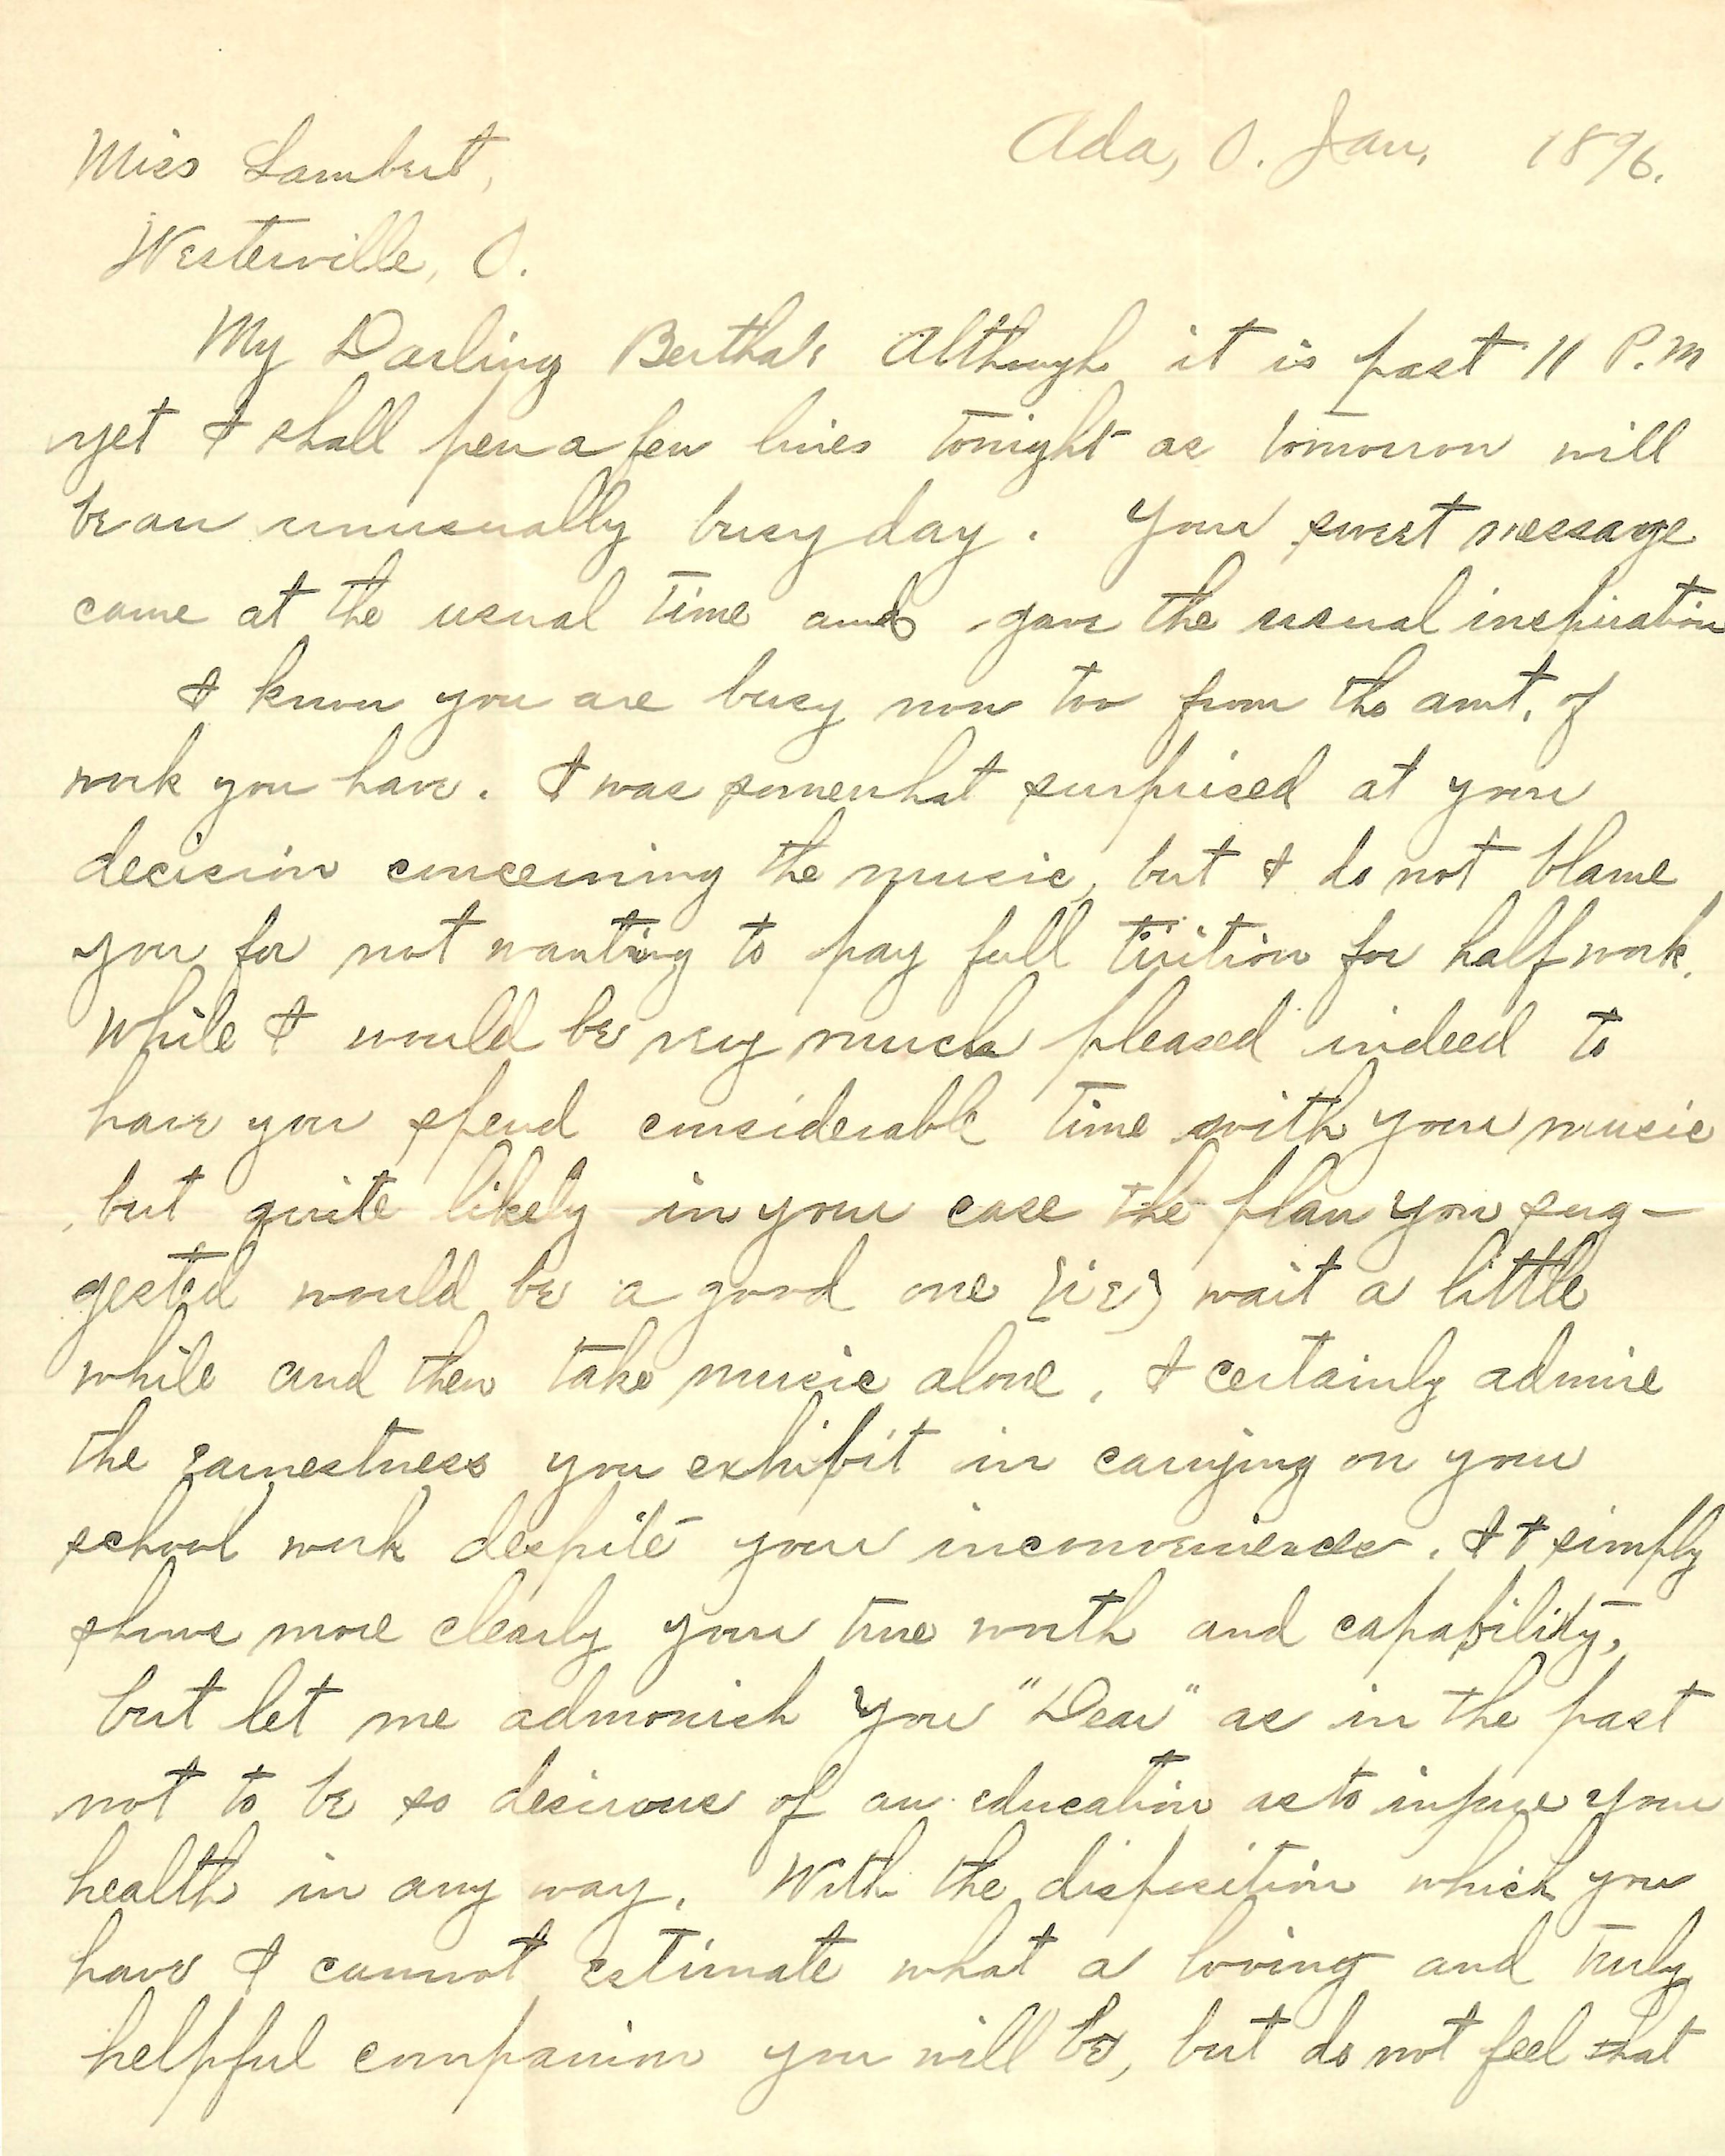 Ada, O. Jan. 1896.
Miss Lambert,
Westerville, O.
My Darling Bertha:- Although it is past 11 P.M
yet I shall pen a few lines tonight as tomorrow will
be an unusually busy day. Your sweet message
came at the usual time and gave the usual inspiration
I know you are busy now too from the amt. of
work you have. I was somewhat surprised at your
decision concerning the music, but I do not blame
you for not wanting to pay full tuition for half work.
While I would be very much pleased indeed to
have you spend considerable time with your music
but quite likely in your case the plan you sug-
gested would be a good one {ie} wait a little
while and then take music alone. I certainly admire
the earnestness you exhibit in carrying on your
school work despite your inconveniences. It simply
shows more clearly your true worth and capability,
but let me admonish you "Dear" as in the past
not to be so desirous of an education as to injure your
health in any way. With the disposition which you
have I cannot estimate what a loving and truly
helpful companion you will be, but do not feel that